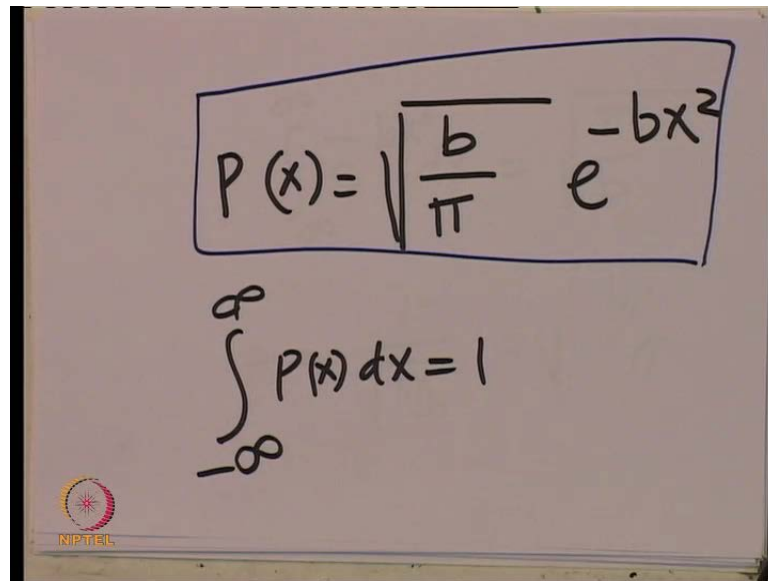 P(x) = √(b/π) e^{-bx²}
∫_{-∞}^{∞} P(x) dx = 1
NPTEL